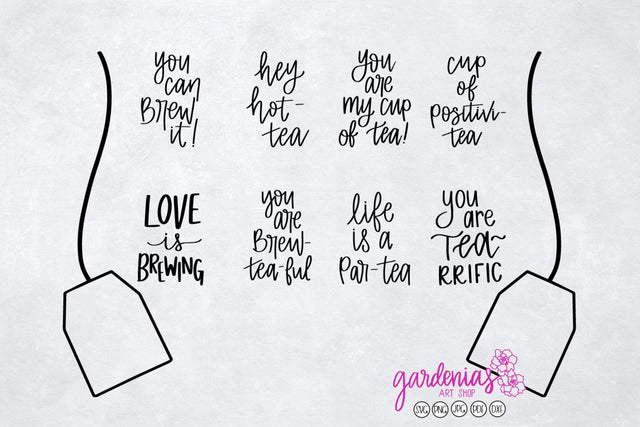 you
can
Brew
it!
hey
hot-
tea
you
are
my cup
of tea!
cup
of
positivi-
tea
LOVE
is
BREWING
you
are
Brew-
tea-ful
life
is a
Par-tea
you
are
Tea-
RRIFIC
gardenias
ART SHOP
SVG PNG JPG PDF DXF